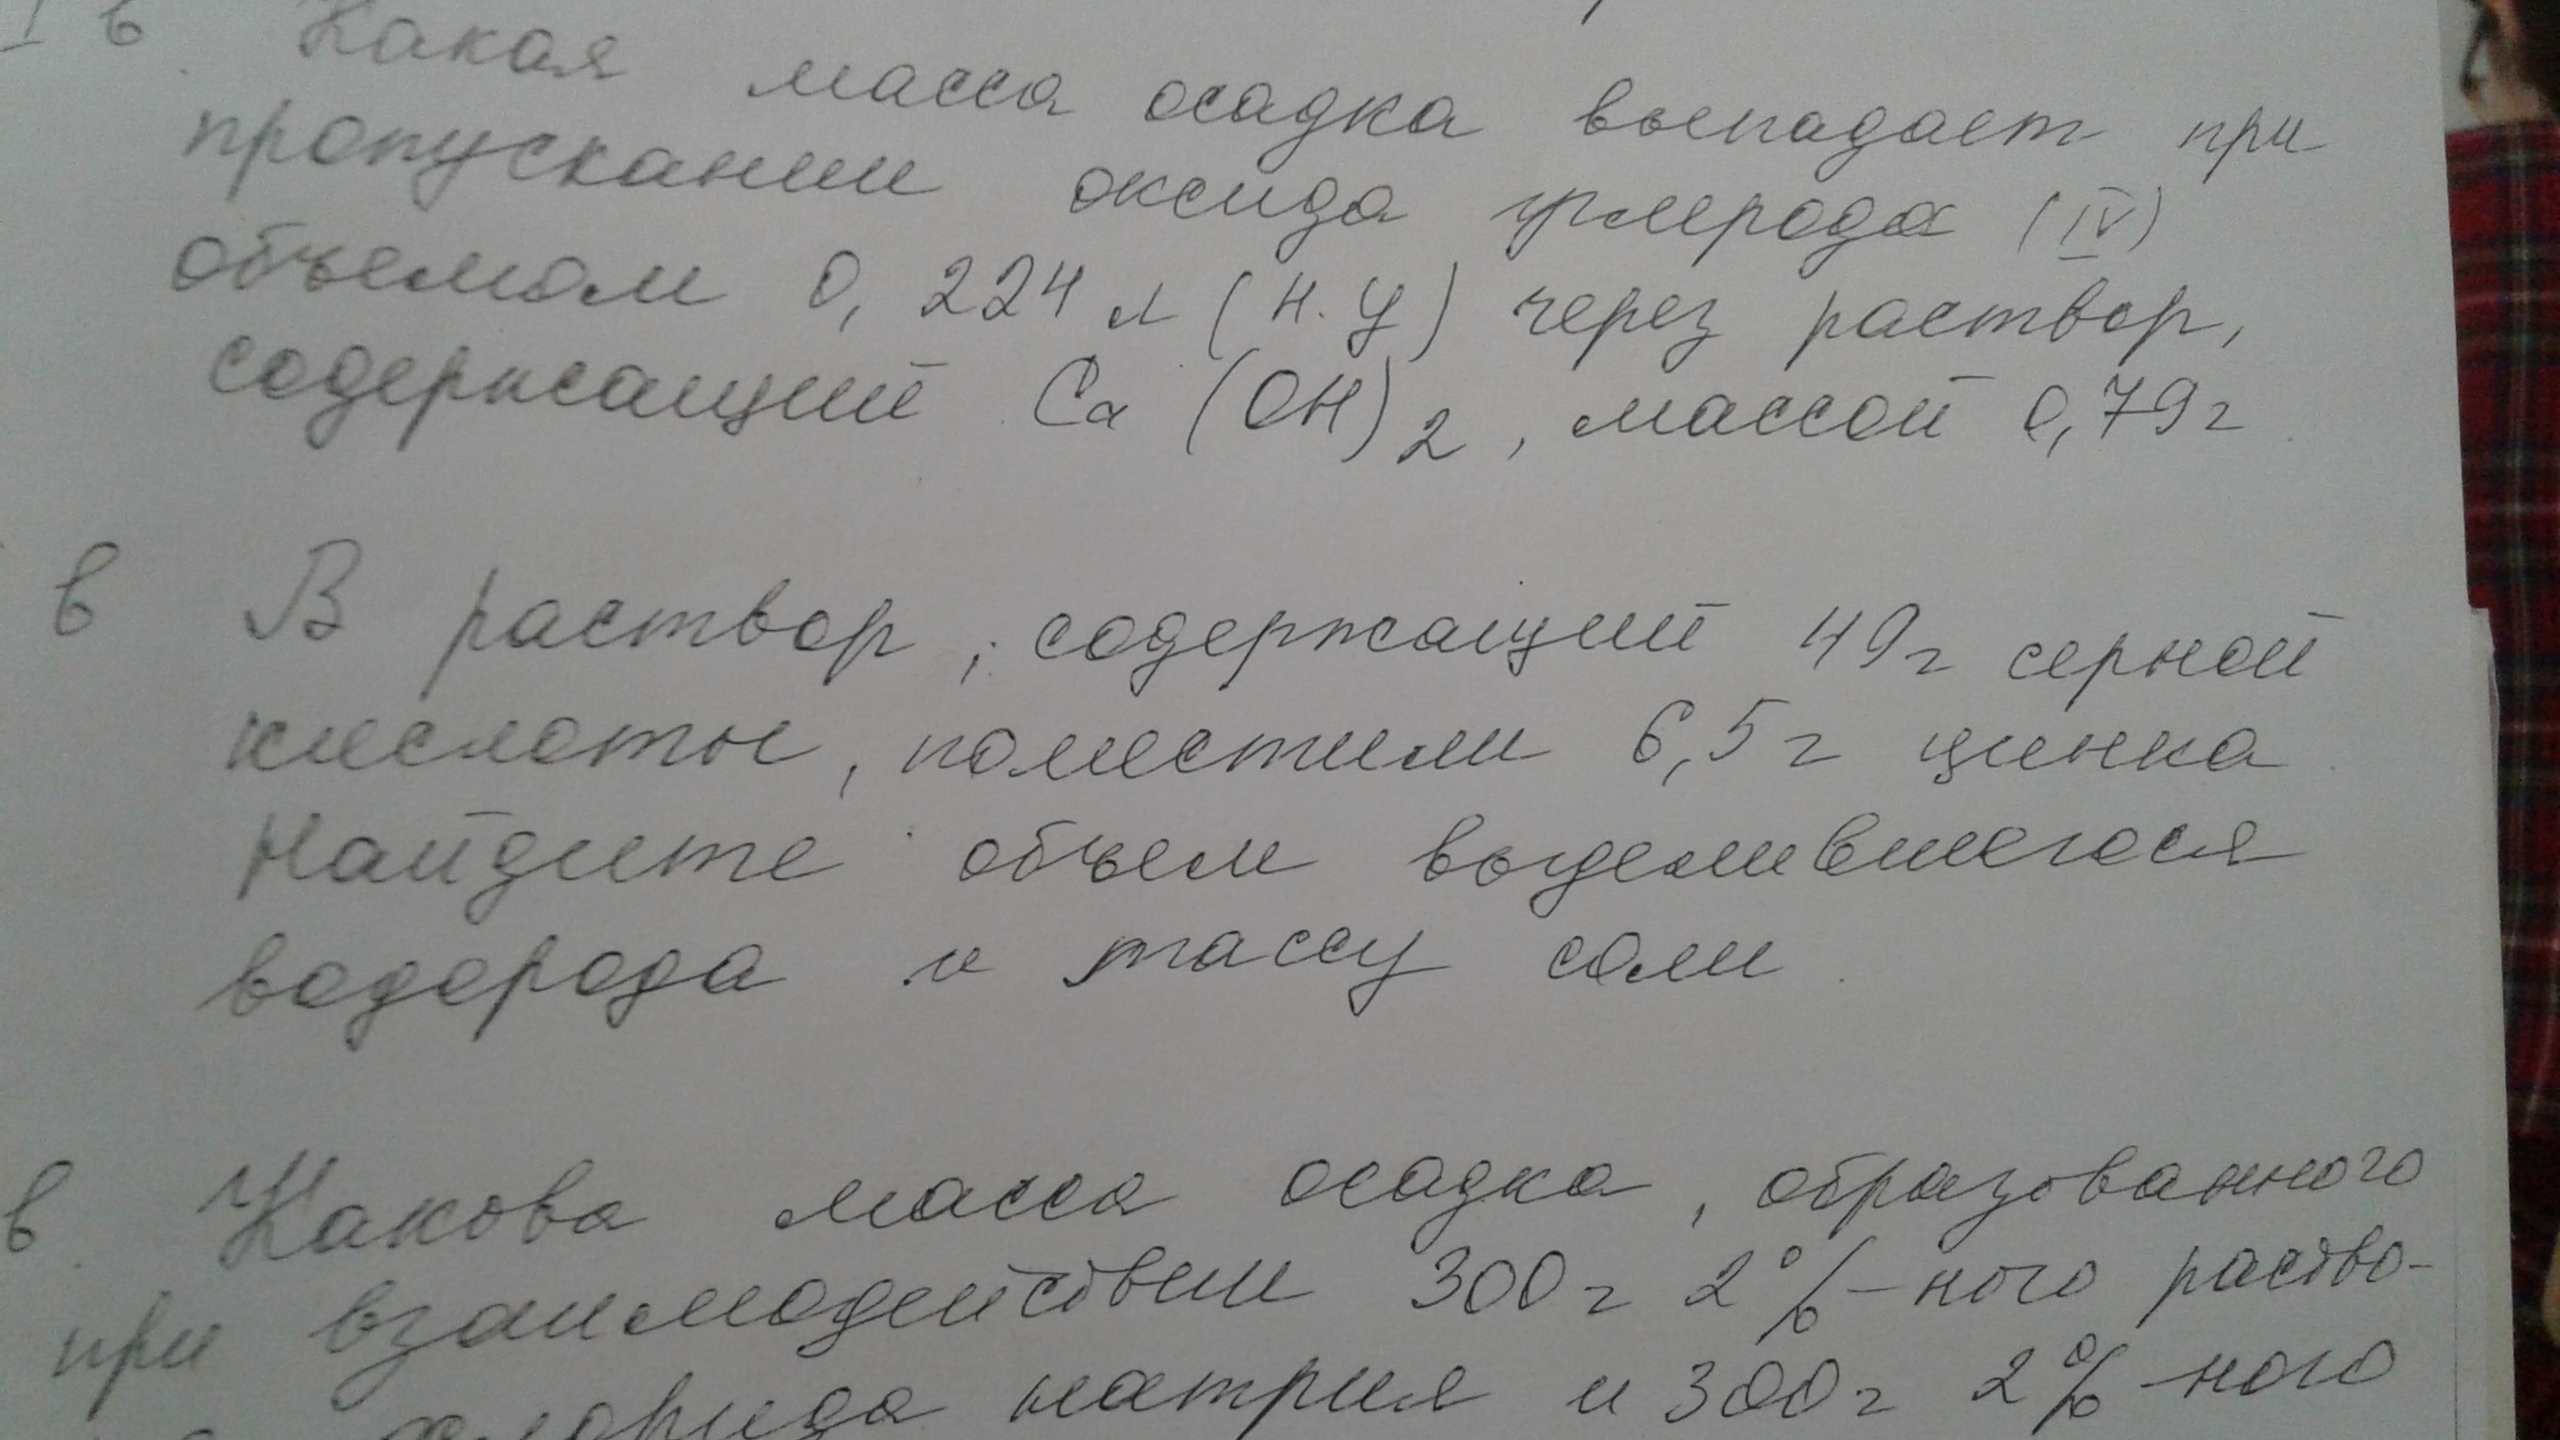 I в Какая масса осадка выпадает при
пропускании оксида углерода (IV)
объемом 0,224 л (н.у) через раствор,
содержащий Ca(OH)2, массой 0,79 г
в В раствор, содержащий 49 г серной
кислоты, поместили 6,5 г цинка.
Найдите объем выделившегося
водорода и массу соли.
в. Какова масса осадка, образованного
при взаимодействии 300 г 2%-ного раство-
хлорида натрия и 300 г 2%-ного